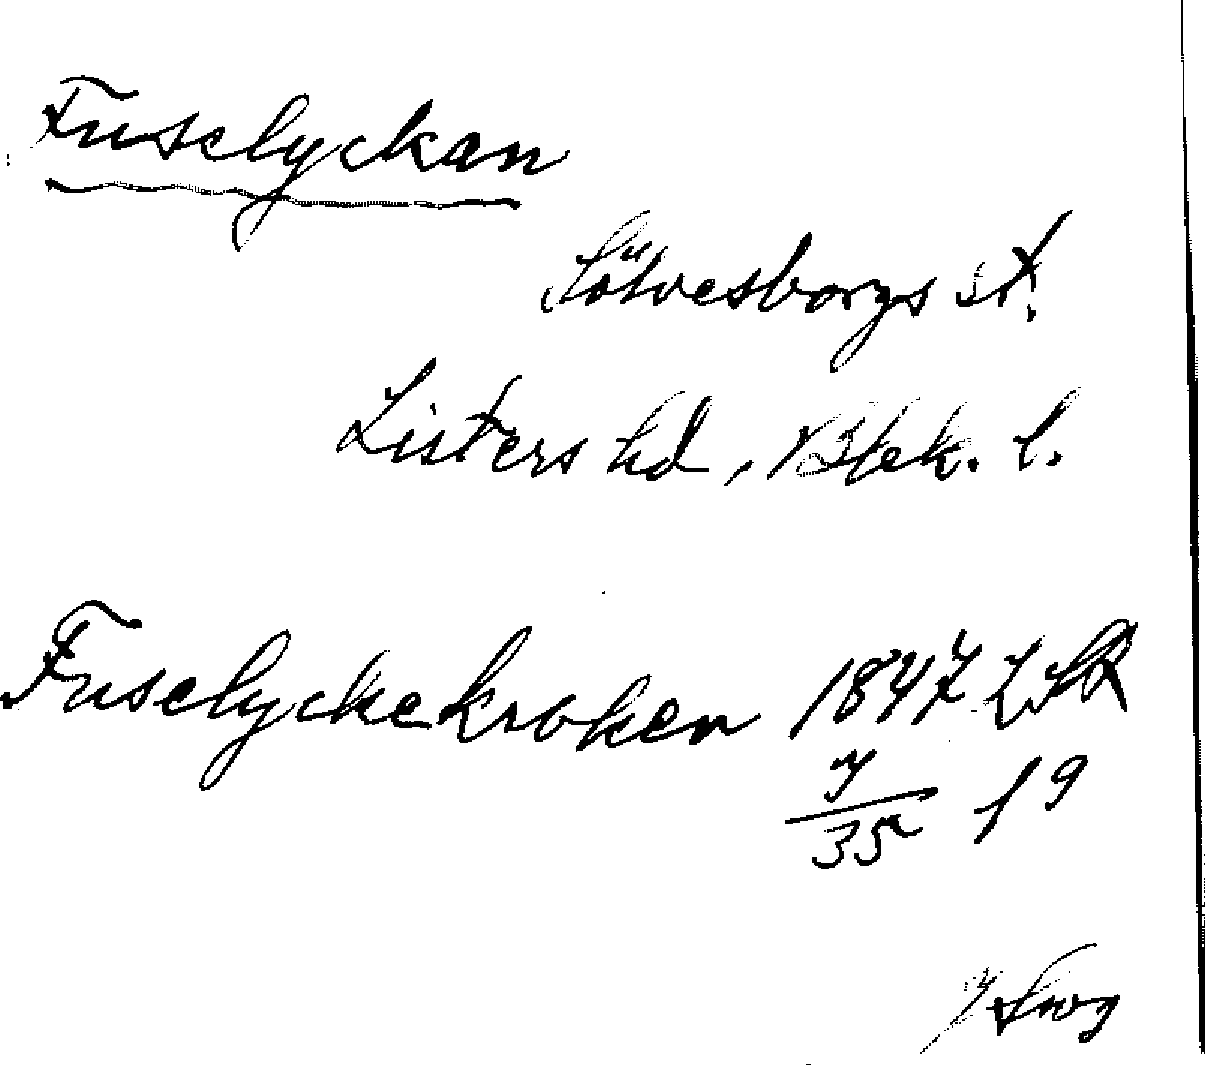 Fuselyckan
Sölvesborgs st.
Listers hd, Blek. l.
Fuselyckekroken 1847 LSA
7
35 19